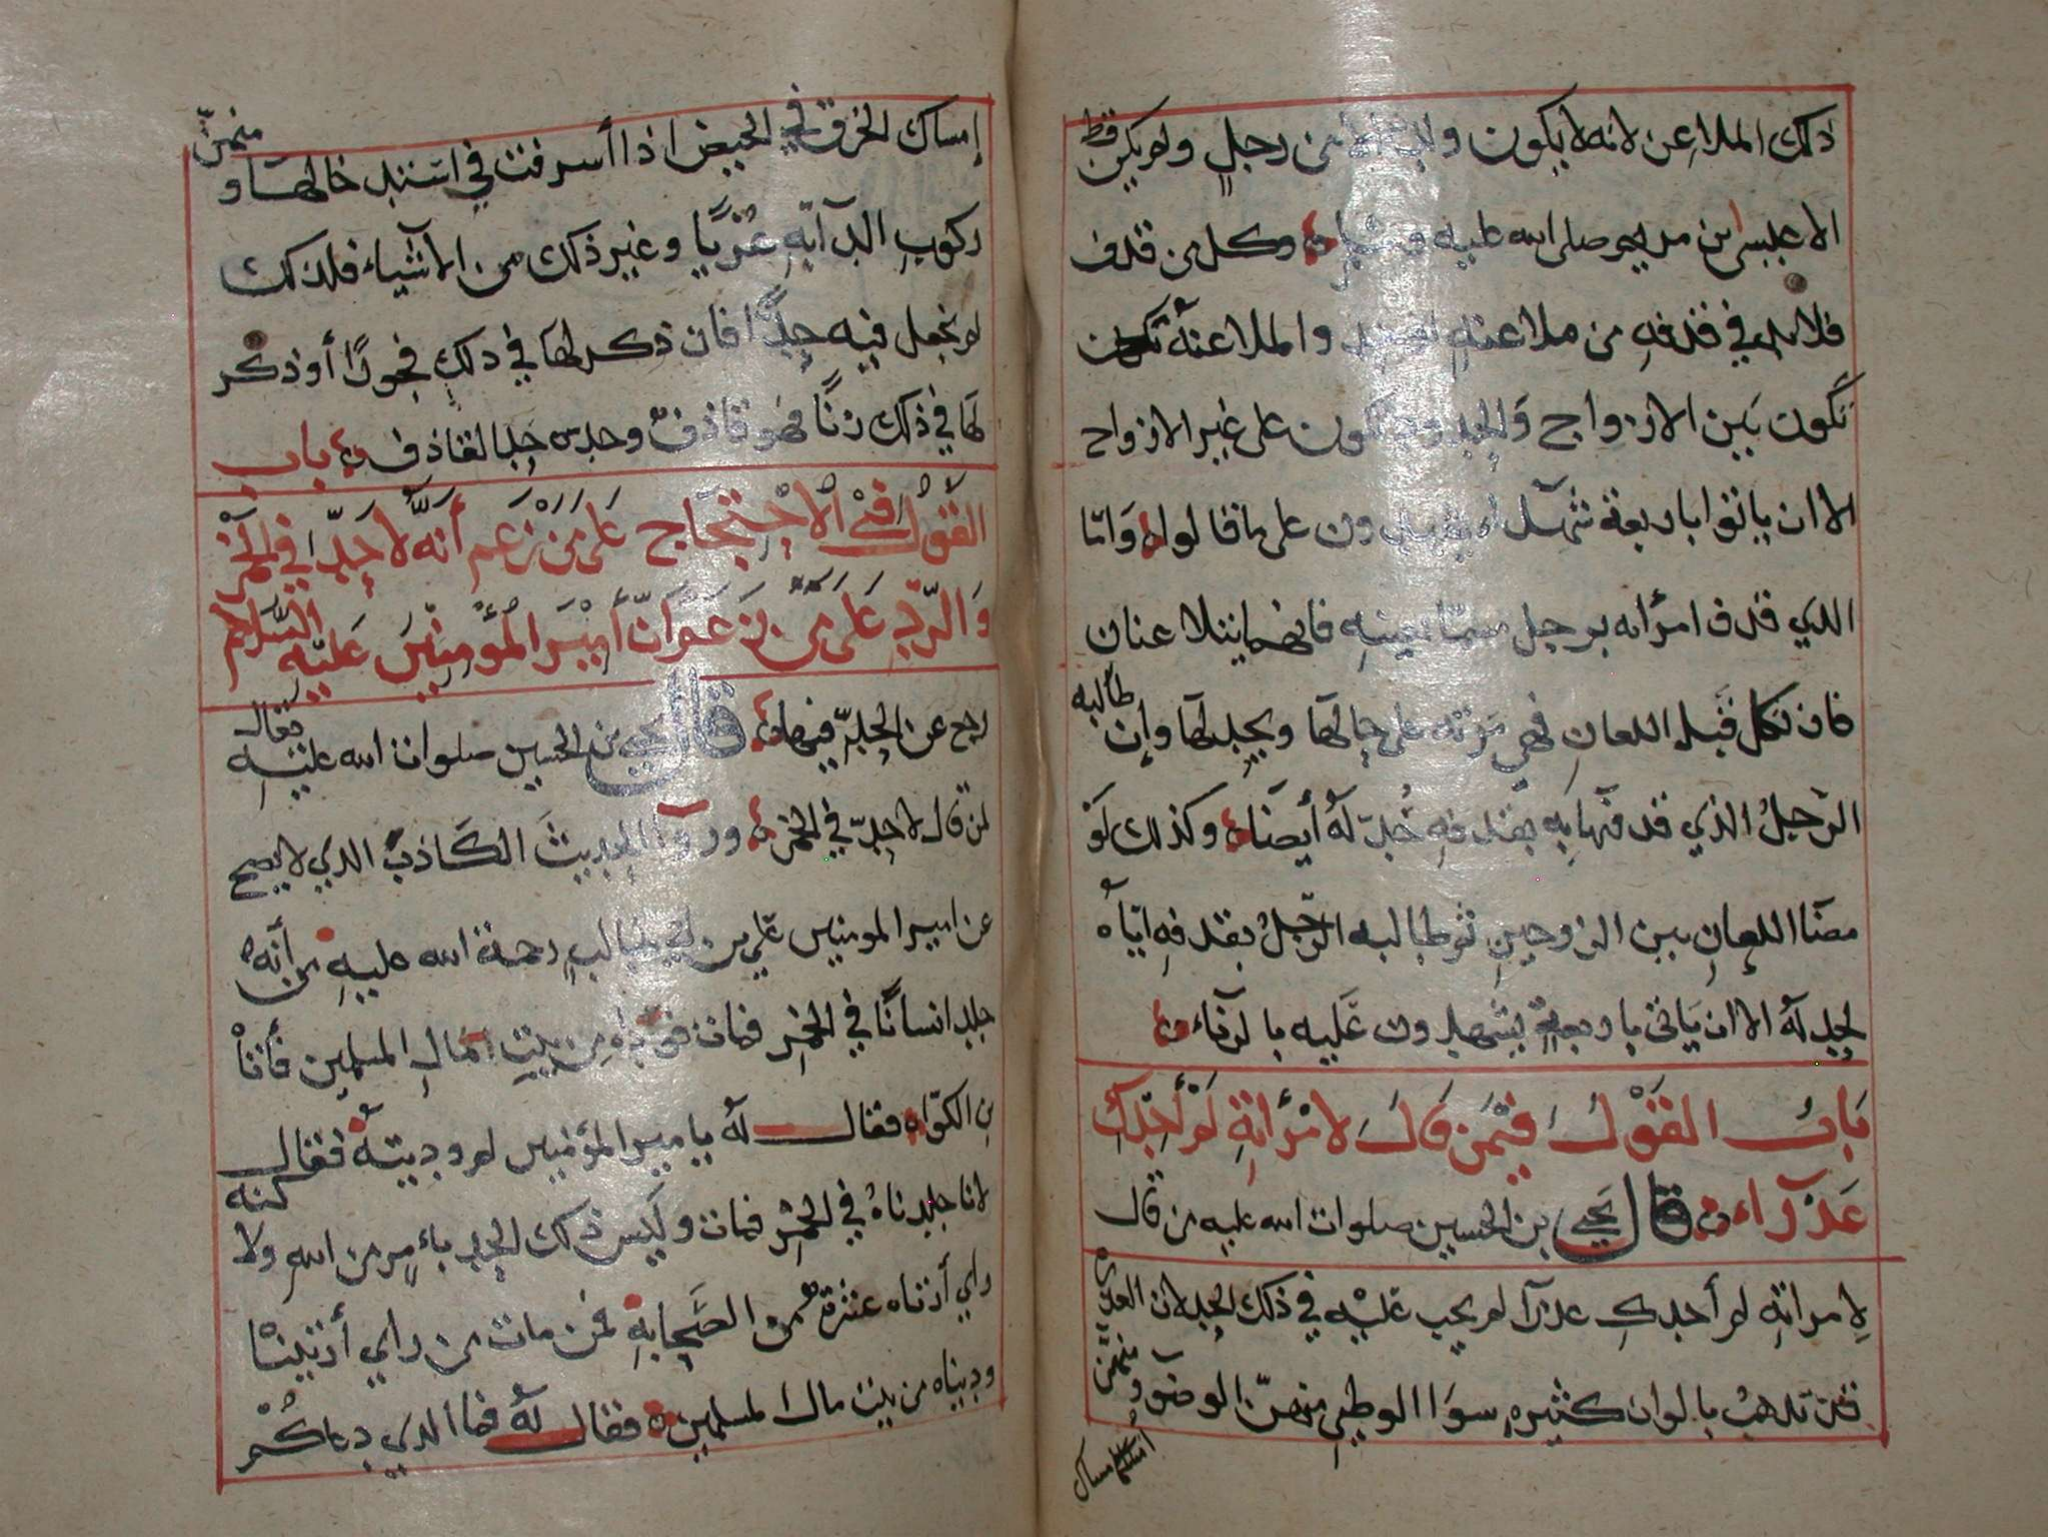 ذلك الملاعن لانه لا يكون ولد الا من رجل ولم يكن قط
الا عيسى ابن مريم صلى الله عليه وكل من قذف
فلا بد في قذفه من ملاعنة والملاعنة تكون
تكون بين الازواج والحد يكون على غير الازواج
الا ان ياتوا باربعة شهدا يشهدون على ما قالوا واما
الذي قذف امرأته برجل سماه بعينه فانهما يتلاعنان
فان نكل قبل اللعان فهي مرته على حالها ويحد لها وإن طالبه
الرجل الذي قذفها به بقذفه حد له أيضا وكذلك لو
مضا اللعان بين الزوجين ثم طالبه الرجل بقذفه اياه
لحد له الا ان ياتى باربعة يشهدون عليه بالزناء
باب القول فيمن قال لامرأته لم أجدك
عذراء قال يحيى بن الحسين صلوات الله عليه من قال
لامراته لم أجدك عذرا لم يجب عليه في ذلك الحد لان العذرى
قد تذهب بالوان كثيره سوا الوطي منهن الوضو ومنهن
امساك
إمساك الخرق في الحيض اذا أسرفت في اسْتِدخالها ومنهن
ركوب الدآبة عريًا وغير ذلك من الاشياء فلذلك
لم نجعل فيه حدًا فان ذكر لها في ذلك فجورًا أو ذكر
لها في ذلك زنًا فهو قاذف وحده حد القاذف باب
القول في الاحتجاج على من زعم أنه لا حد في الخمر
والرد على من زعم ان أمير المؤمنين عليه السلام
رجع عن الحد فيها قال يحيى بن الحسين صلوات الله عليه يقال
لمن قال لا حد في الخمر وروا الحديث الكاذب الذي لا يصح
عن امير المومنين علي بن ابي طالب رحمة الله عليه من أنه
جلد انسانًا في الخمر فمات فوداه من بيت مال المسلمين فأتاه
بن الكواء فقال له يا مير المؤمنين لم وديته فقال
لانا جلدناه في الخمر فمات وليس ذلك الحد بأمر من الله ولا كنه
راي أدناه عشرة من الصحابة فمن مات من راي أدنينا
وديناه من بيت مال المسلمين فقال له فما الذي دعاكم